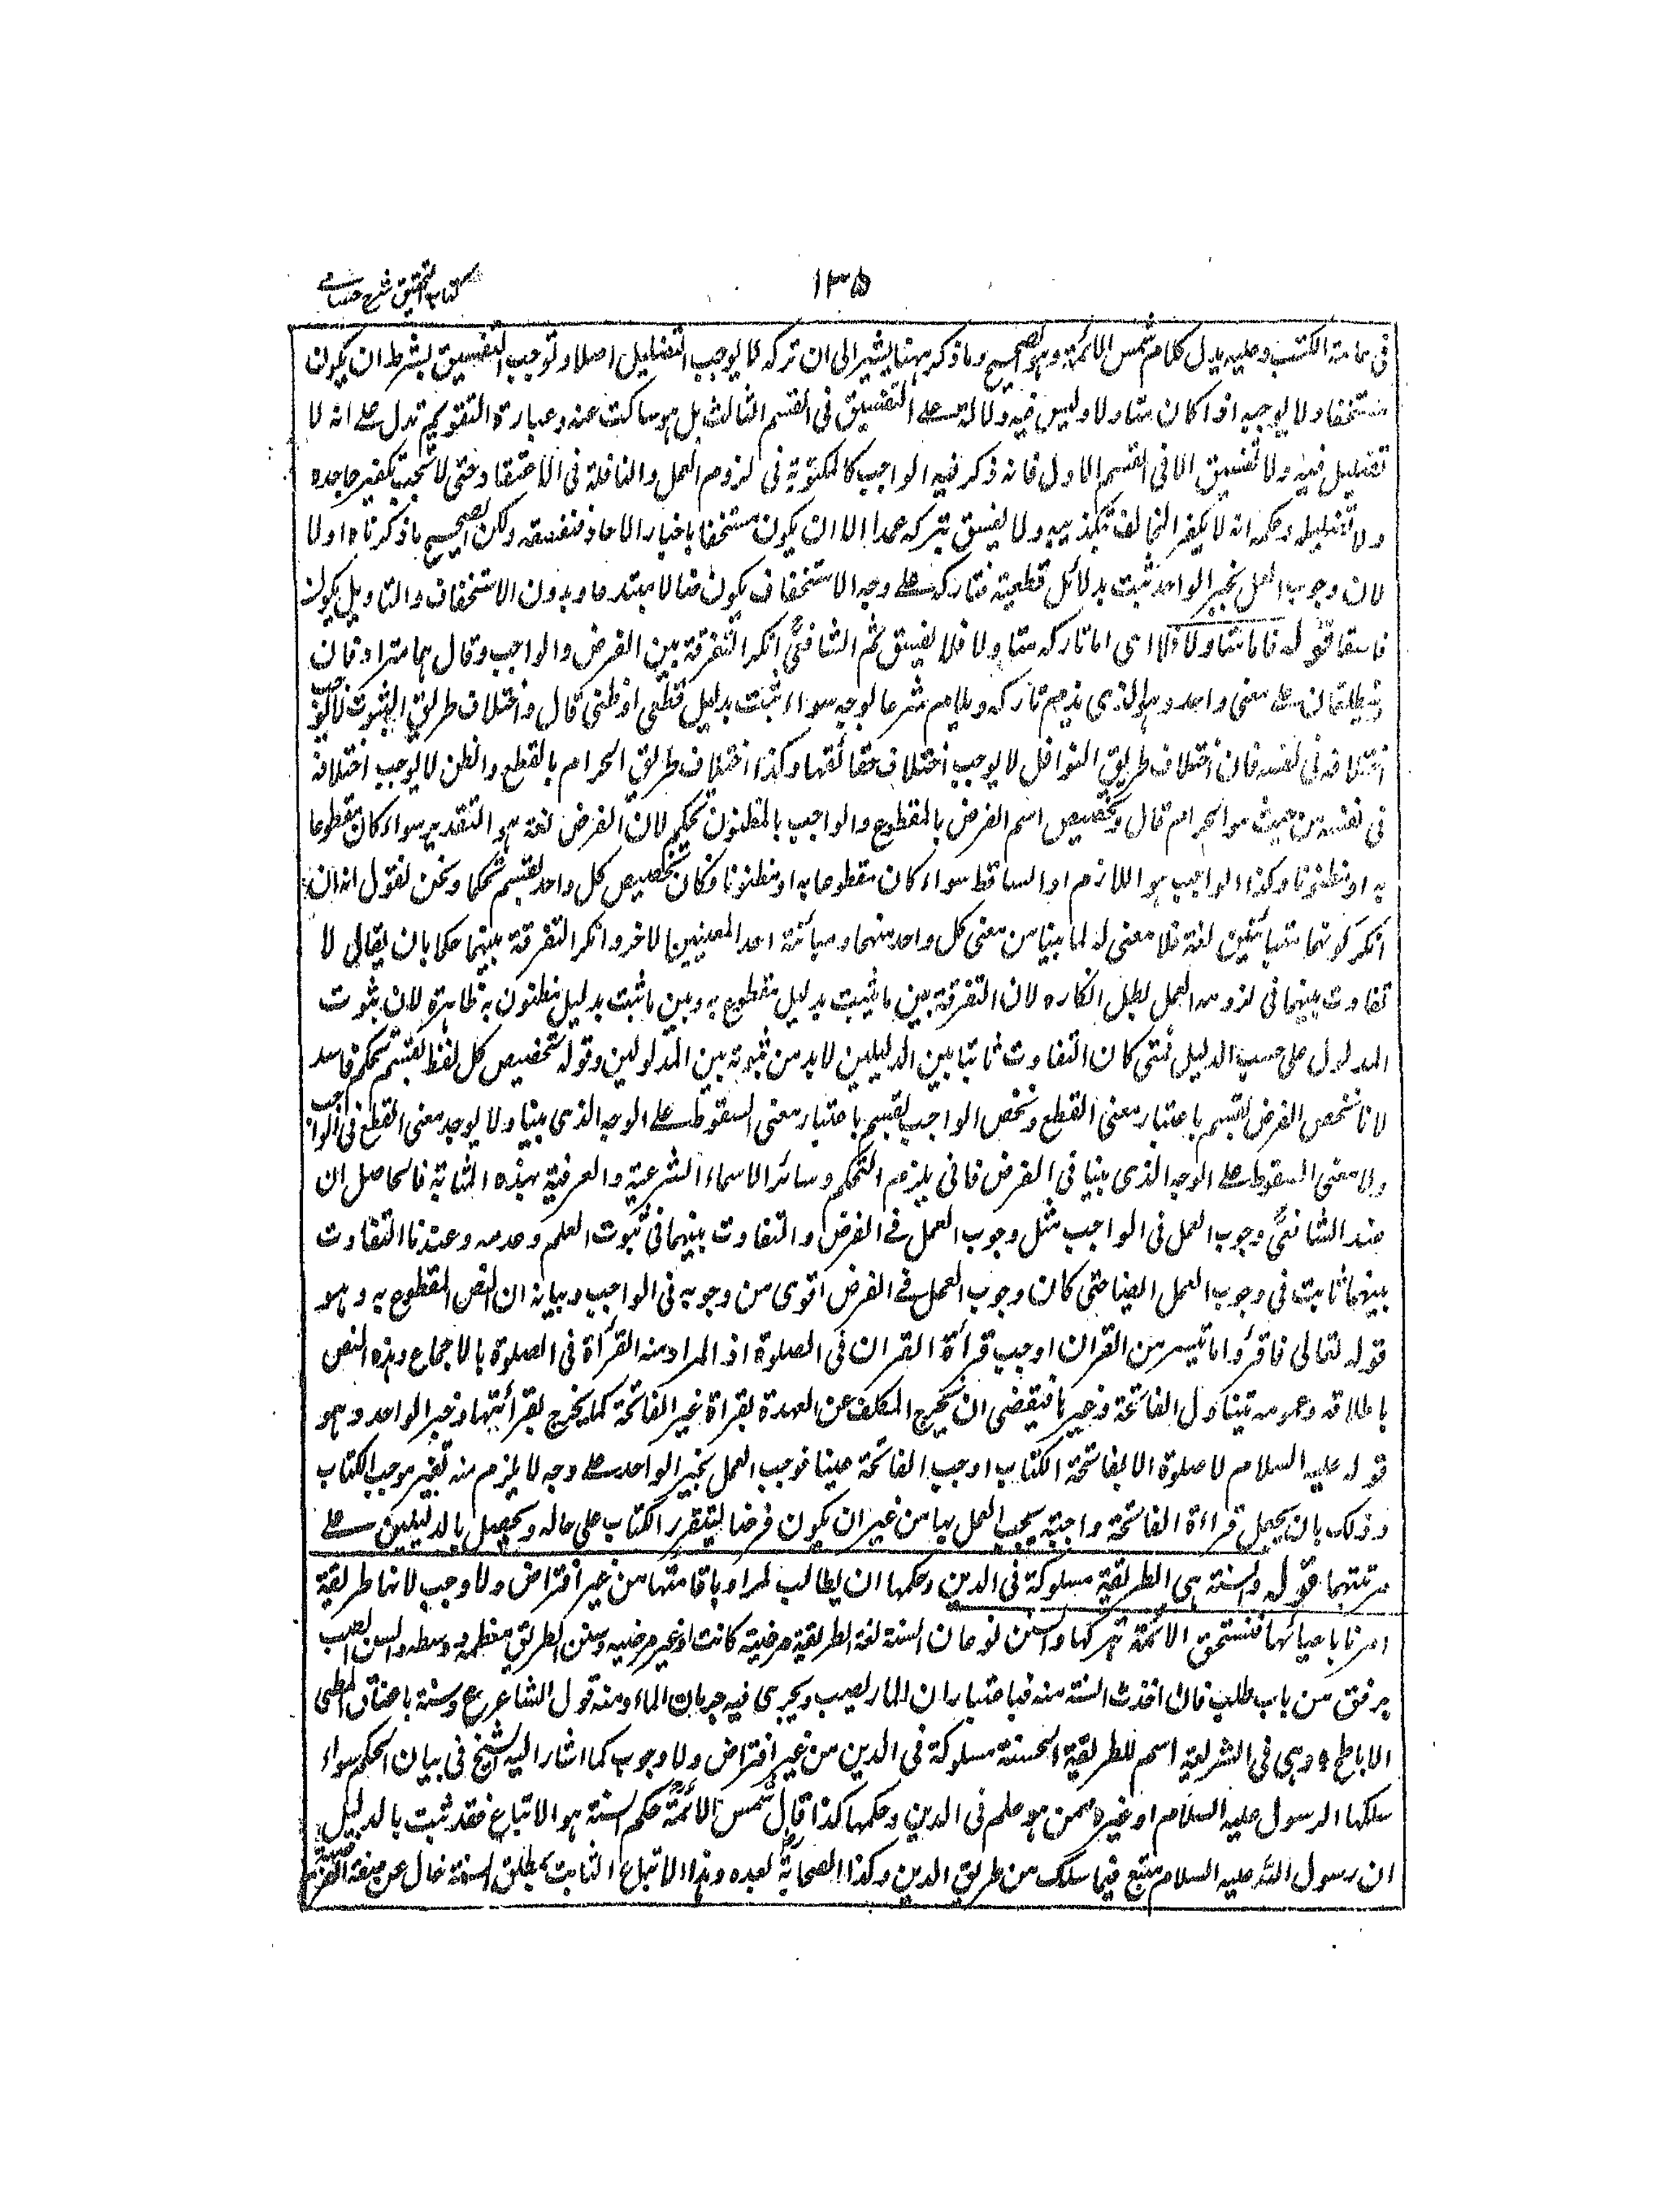 ١٣٥
كتاب التحقيق شرح حسامي
فى عامة الكتب وعليه يدل كلام شمس الائمة وهو الصحيح وما ذكر ههنا يشير الى ان تركه لا يوجب التضليل اصلا وتوجب التفسيق بشرط ان يكون
مستخفا ولا يوجبه اذا كان متاولا وليس فيه دلالة على التفسيق فى القسم الثالث بل هو ساكت عنه وعبارة التقويم تدل على انه لا
تضليل فيه ولا تفسيق الا فى القسم الاول فانه ذكر فيه الواجب كالمكتوبة فى لزوم العمل والنافلة فى الاعتقاد حتى لا يجب تكفير جاحده
ولا تضليله وحكمه انه لا يكفر المخالف بتكذيبه ولا يفسق بتركه عمدا الا ان يكون مستخفا باخبار الاحاد فنفسقه ولكن الصحيح ما ذكرناه اولا
لان وجوب العمل بخبر الواحد ثبت بدلائل قطعية فتاركه على وجه الاستخفاف يكون ضالا مبتدعا وبدون الاستخفاف والتاويل يكون
فاسقا قوله فاما متاولا فلا اى اما تاركه متاولا فلا يفسق ثم الشافعيؒ انكر التفرقة بين الفرض والواجب وقال هما مترادفان
ويطلقان على معنى واحد وهو الذى يذم تاركه ويلام شرعا لوجه سواء ثبت بدليل قطعى او ظنى قال واختلاف طريق الثبوت لا يوجب
اختلافه فى نفسه فان اختلاف طريق النوافل لا يوجب اختلاف حقائقها وكذا اختلاف طريق الحرام بالقطع والظن لا يوجب اختلافه
فى نفسه من حيث هو حرام قال وتخصيص اسم الفرض بالمقطوع والواجب بالمظنون تحكم لان الفرض لغة هو التقدير سواء كان مقطوعا
به او مظنونا وكذا الواجب هو اللازم او الساقط سواء كان مقطوعا به او مظنونا فكان تخصيص كل واحد بقسم تحكما ونحن نقول انه ان
انكر كونهما متباينين لغة فلا معنى له لما بينا من معنى كل واحد منهما ومباينة احد المعنيين الاخر وانكر التفرقة بينهما حكما بان يقال لا
تفاوت بينهما فى لزوم العمل بطل انكاره لان التفرقة بين ما ثبت بدليل مقطوع به وبين ما ثبت بدليل مظنون به ظاهرة لان ثبوت
المدلول على حسب الدليل فمتى كان التفاوت ثابتا بين الدليلين لابد من ثبوته بين المدلولين وقوله تخصيص كل لفظ بقسم تحكم فاسد
لانا نخص الفرض بقسم باعتبار معنى القطع ونخص الواجب بقسم باعتبار معنى السقوط على الوجه الذى بينا ولا يوجد معنى القطع فى الواجب
ولا معنى السقوط على الوجه الذى بينا فى الفرض فانى يلزم التحكم وسائر الاسماء الشرعية والعرفية بهذه المثابة فالحاصل ان
عند الشافعيؒ وجوب العمل فى الواجب مثل وجوب العمل فى الفرض والتفاوت بينهما فى ثبوت العلم وعدمه وعندنا التفاوت
بينهما ثابت فى وجوب العمل ايضا حتى كان وجوب العمل فى الفرض اقوى من وجوبه فى الواجب وبيانه ان النص المقطوع به وهو
قوله تعالى فاقرؤا ما تيسر من القران اوجب قرأة القران فى الصلوة اذ المراد منه القرأة فى الصلوة بالاجماع وهذه النص
باطلاقه وعمومه يتناول الفاتحة وغيرها فيقضى ان يخرج المكلف عن العهدة بقراة غير الفاتحة كما يخرج بقرأتها وخبر الواحد وهو
قوله عليه السلام لا صلوة الا بفاتحة الكتاب اوجب الفاتحة عينا فوجب العمل بخبر الواحد على وجه لا يلزم منه تغير موجب الكتاب
وذلك بان يجعل قراءة الفاتحة واجبة يجب العمل بها من غير ان يكون فرضا ليتقرر الكتاب على حاله ويحصل بالدليلين على
مرتبتهما قوله والسنة هى الطريقة مسلوكة فى الدين وحكمها ان يطالب المرا وباقامتها من غير افتراض ولا وجوب لانها طريقة
امرنا باحيائها فنستحق الائمة بتركها والسنن نوعان السنة لغة الطريقة مرضية كانت او غير مرضيه وسنن الطريق معظمه ووسطه والسن الصب
برفق من باب طلب فان اخذت السنة منه فباعتبار ان المار يصيب ويجرى فيه جريان الماء ومنه قول الشاعر ع وسنة باعناق المطى
الاباطح ه وهى فى الشريعة اسم للطريقة الحسنة مسلوكة فى الدين من غير افتراض ولا وجوب كما اشار اليه الشيخ فى بيان الحكم سواء
سلكها الرسول عليه السلام او غيره ممن هو علم فى الدين وحكمها كذا قال شمس الائمةؒ حكم السنة هو الاتباع فقد ثبت بالدليل
ان رسول الله عليه السلام متبع فيما سلك من طريق الدين وكذا الصحابةؓ بعده وهذا الاتباع الثابت بمطلق السنة خال عن صفة الفرضية